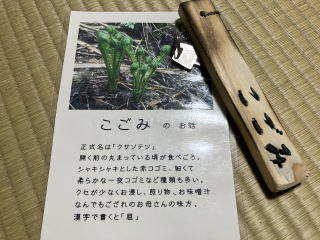 こごみ の お話
正式名は「クサソテツ」
開く前の丸まっている頃が食べごろ。
シャキシャキとした赤コゴミ、細くて
柔らかな一夜コゴミなど種類も多い。
クセが少なくお浸し、煎り物、お味噌汁
なんでもござれのお母さんの味方。
漢字で書くと「屈」
こごみ